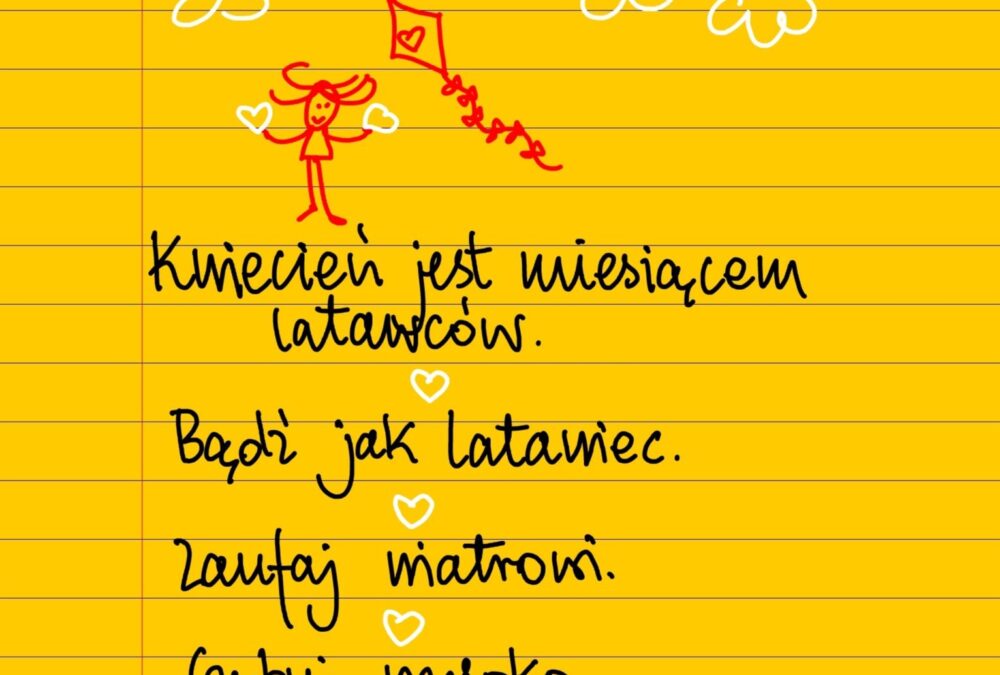 Kwiecień jest miesiącem
latawców.
Bądź jak latawiec.
Zaufaj wiatrowi.